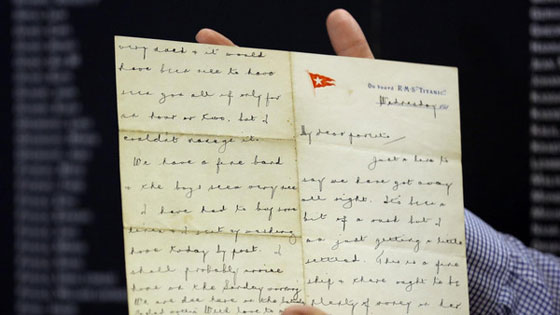 On board R.M.S. "Titanic".
Wednesday 191
My dear parents,
Just a line to
say we have got away
all right. It's been a
bit of a rush but I
am just getting a little
settled. This is a fine
ship & there ought to be
plenty of money on her
very much & it would
have been nice to have
seen you all if only for
an hour or two, but I
couldn't manage it.
We have a fine band
& the boys seem very nice
I have had to buy some
linen & I sent my washing
home today by post. I
shall probably arrive
home on the Sunday morning
We are due here on the